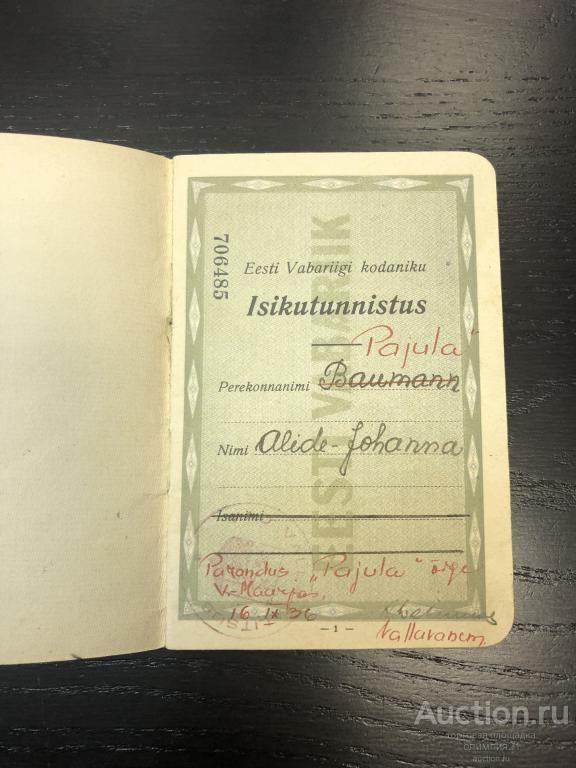 706485
EESTI VABARIIK
Eesti Vabariigi kodaniku
Isikutunnistus
„Pajula"
Perekonnanimi Baumann
Nimi Alide-Johanna
Isanimi
Parandus „Pajula" õige
V.-Maarjas,
16 IX 36
Vallavanem.
— 1 —
Auction.ru
торговая площадка
ОЛИМПИЯ.21
auction.ru